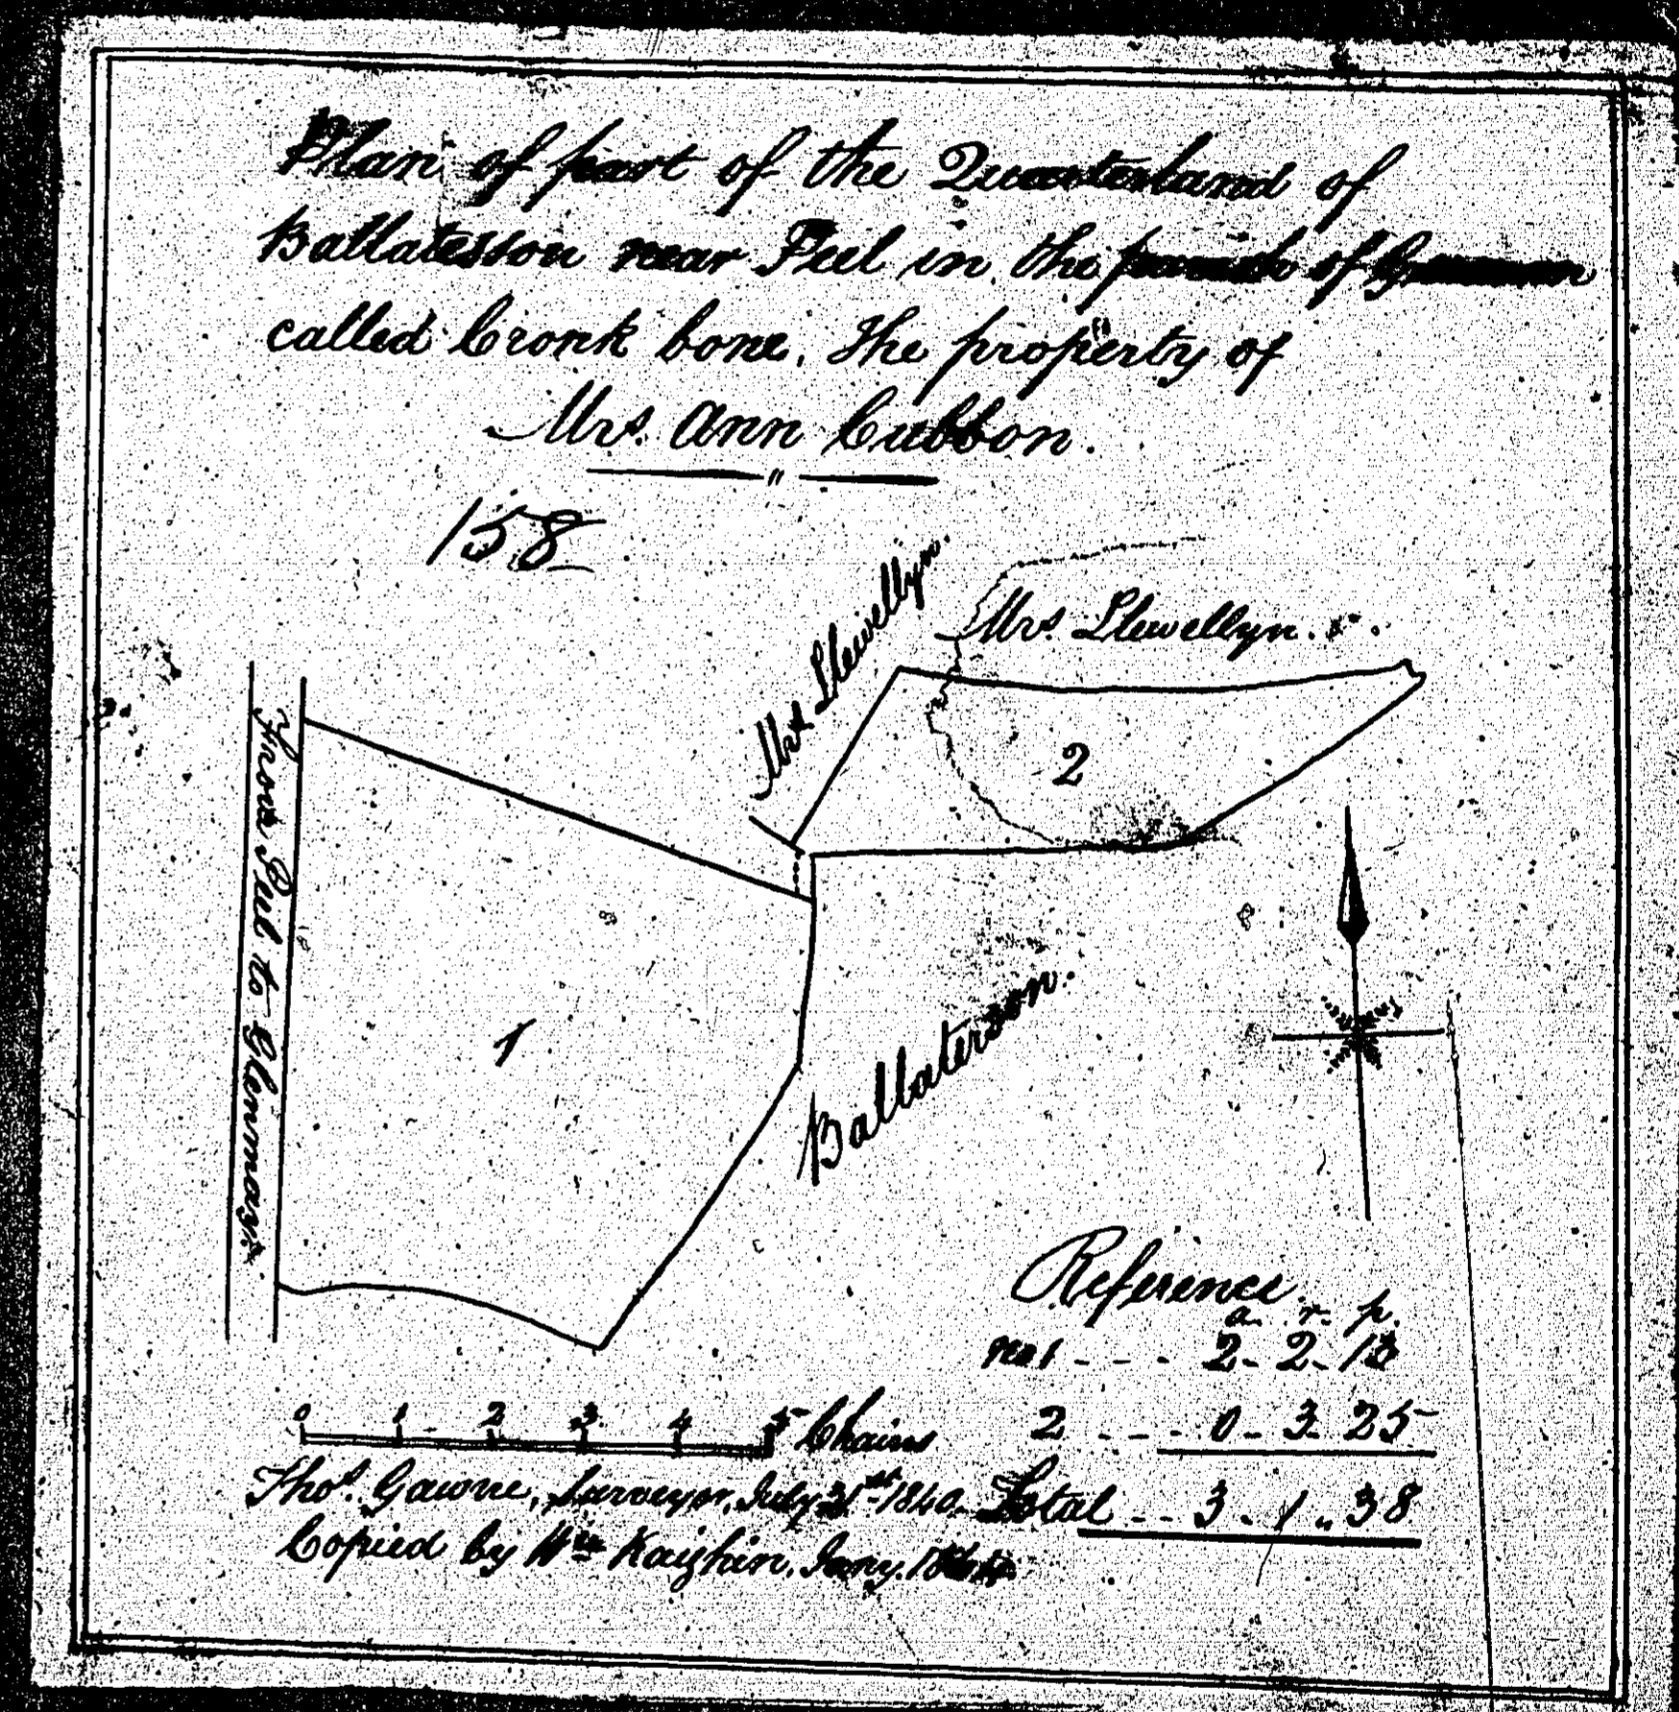 Plan of part of the Quarterland of
Ballatesson near Peel in the parish of German
called Cronk bone. The property of
Mrs. Ann Cubbon.
158
Mrs. Llewellyn.
Mrs. Llewellyn.
From Peel to Glenmay
2
1
Ballaterson.
Reference.
a. r. p.
No 1 - - - 2 - 2 - 13
2 - - - 0 - 3 - 25
Total - - 3 - 1 - 38
0 1 2 3 4 5 Chains
Thos. Gawne, Surveyor, July 31st 1840
Copied by Wm Kaighin, Jany.